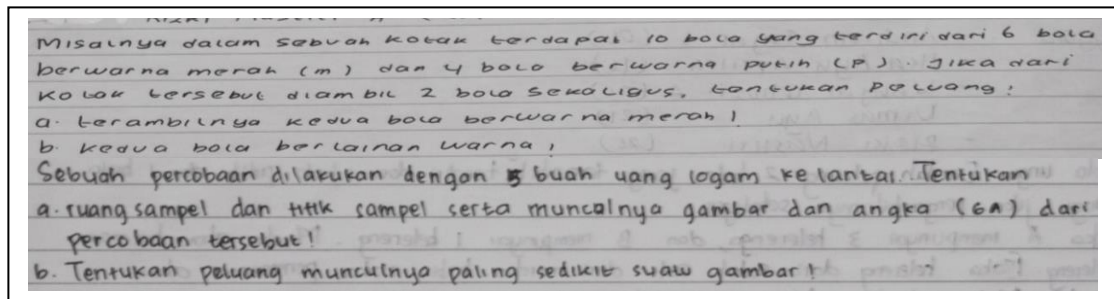 Misalnya dalam sebuah kotak terdapat 10 bola yang terdiri dari 6 bola
berwarna merah (m) dan 4 bola berwarna putih (P). Jika dari
kotak tersebut diambil 2 bola sekaligus, tentukan peluang:
a. terambilnya kedua bola berwarna merah!
b. kedua bola berlainan warna!
Sebuah percobaan dilakukan dengan 5 buah uang logam ke lantai. Tentukan
a. ruang sampel dan titik sampel serta muncalnya gambar dan angka (GA) dari
percobaan tersebut!
b. Tentukan peluang munculnya paling sedikit suatu gambar!